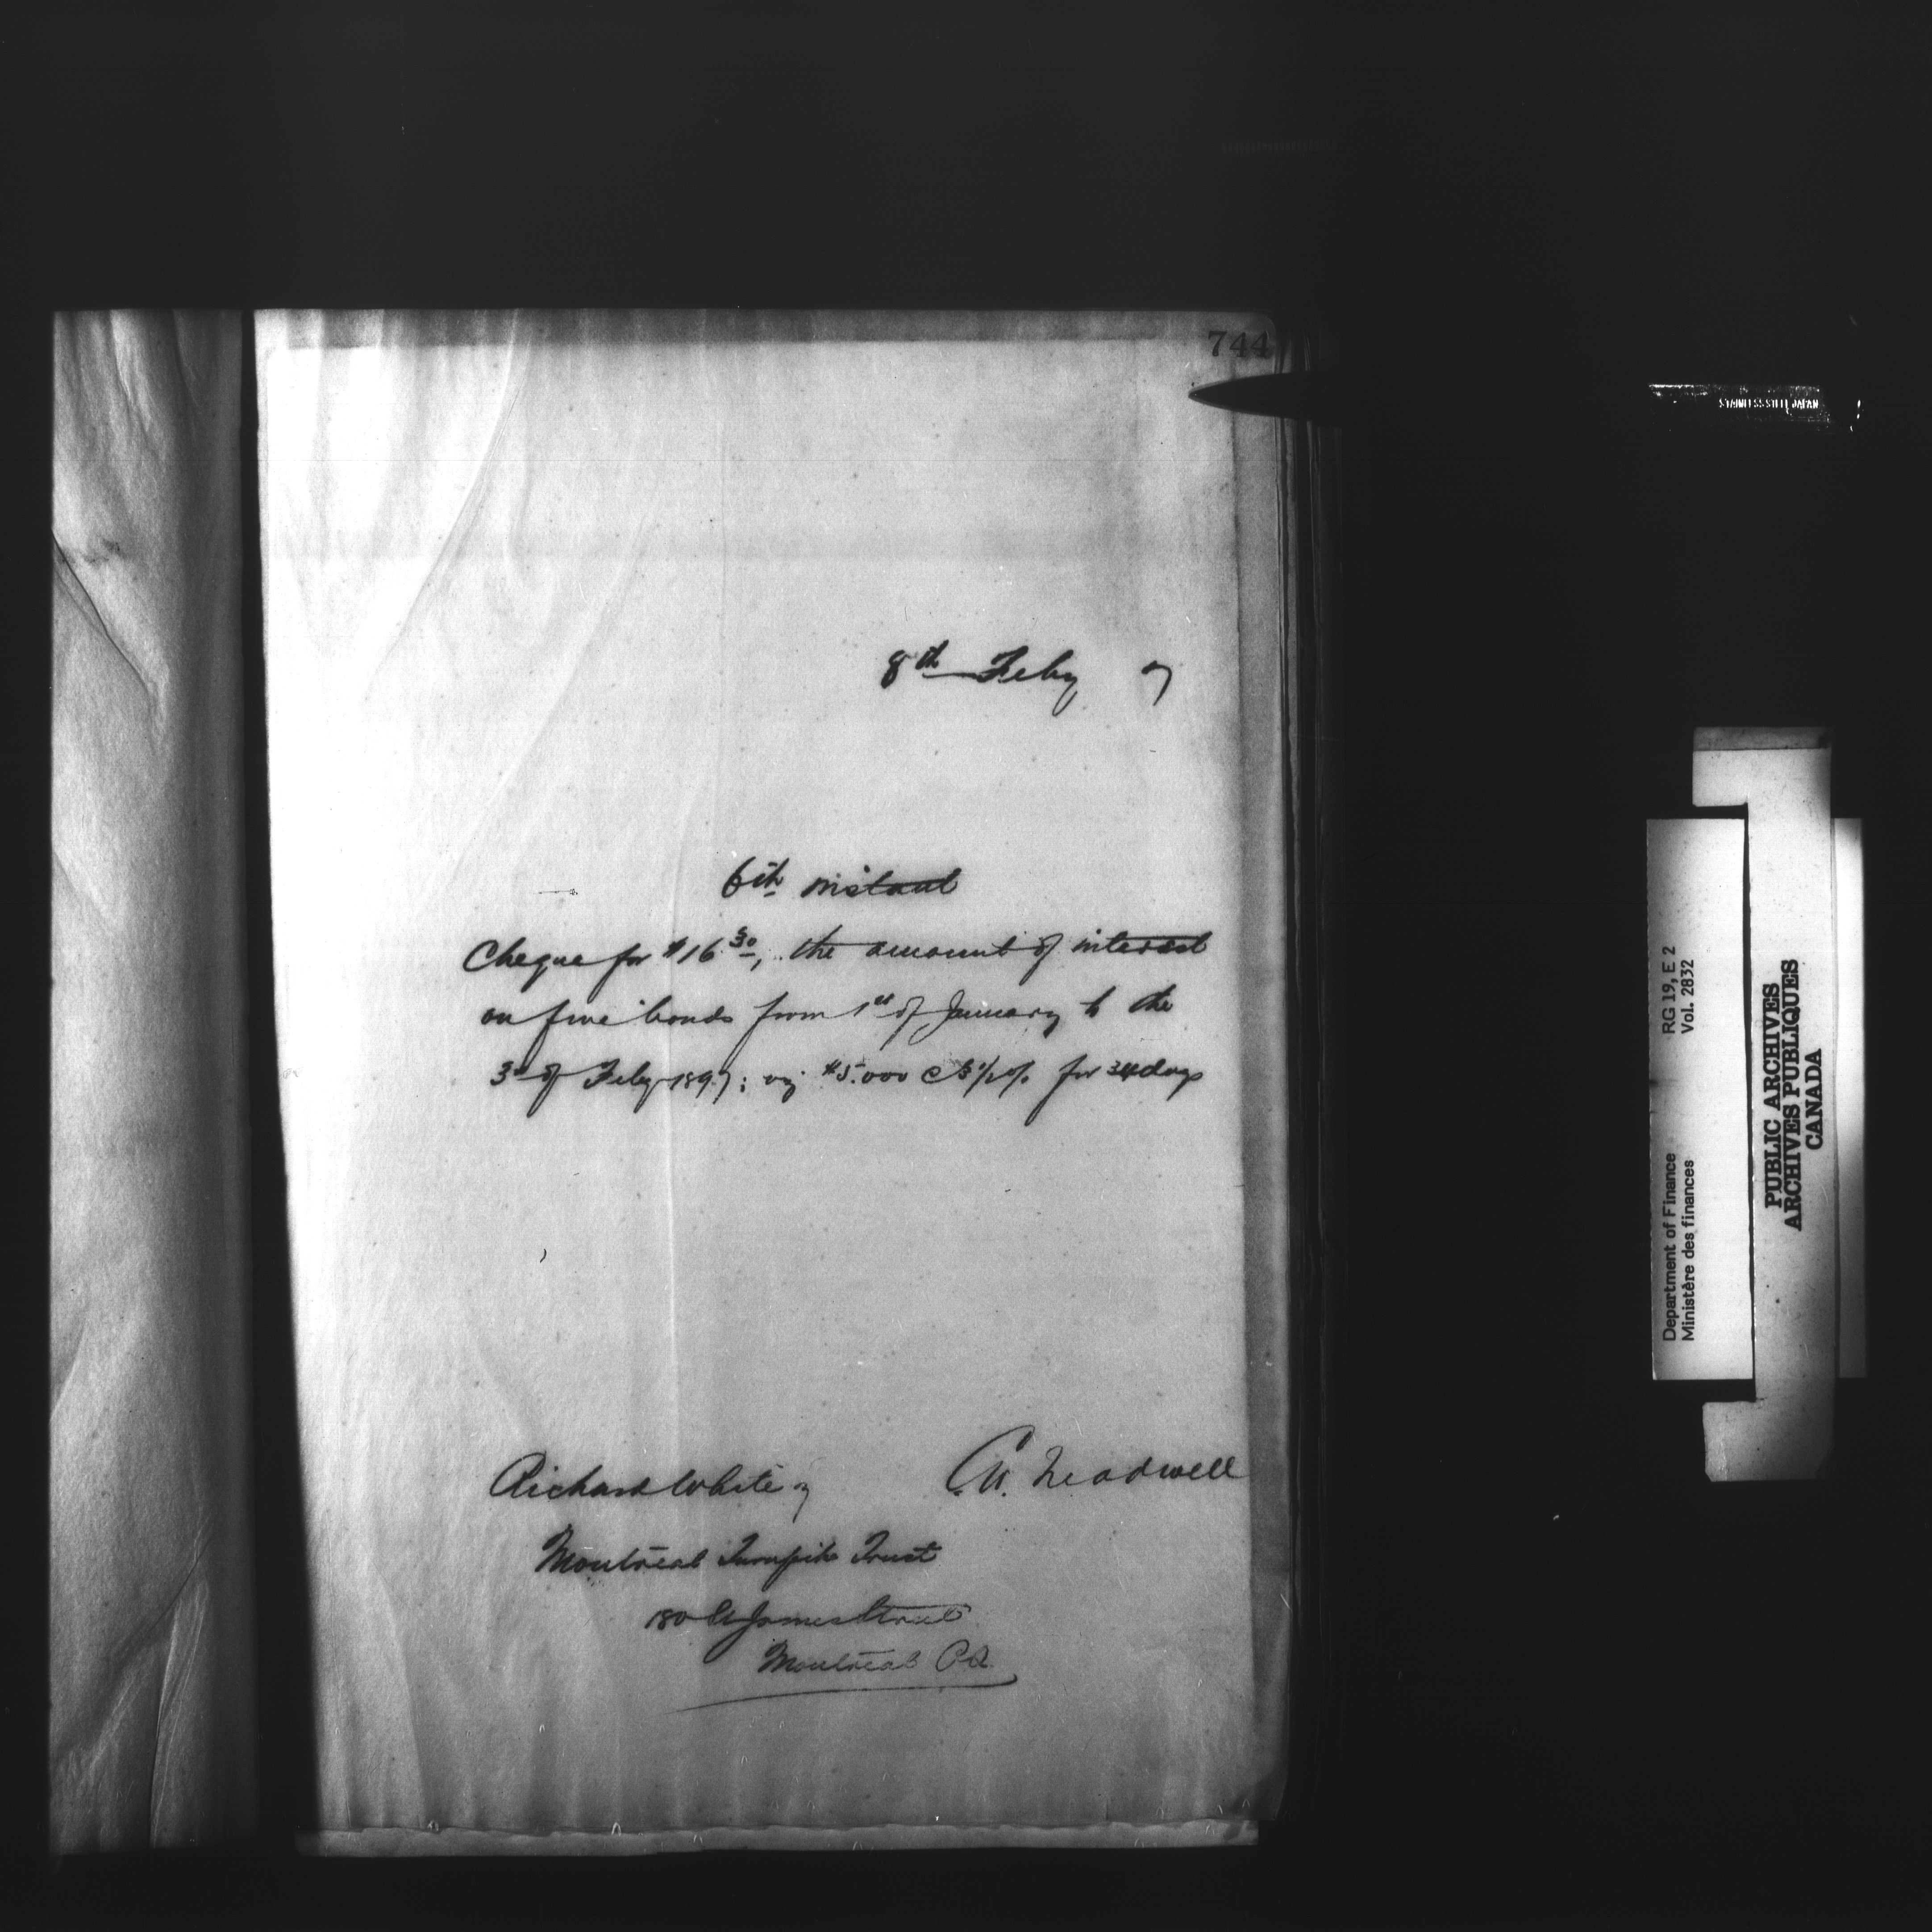 744
8th Feby 7
6th instant
Cheque for $16 30, the amount of interest
on five bonds from 1st of January to the
3rd of Feby 1897; viz $5.000 @ 3 1/2 % for 34 days
Richard White
Montreal Turnpike Trust
180 St James Street
Montreal P.Q.
STAINLESS STEEL JAPAN
Department of Finance RG 19, E 2
Ministère des finances Vol. 2832
PUBLIC ARCHIVES
ARCHIVES PUBLIQUES
CANADA